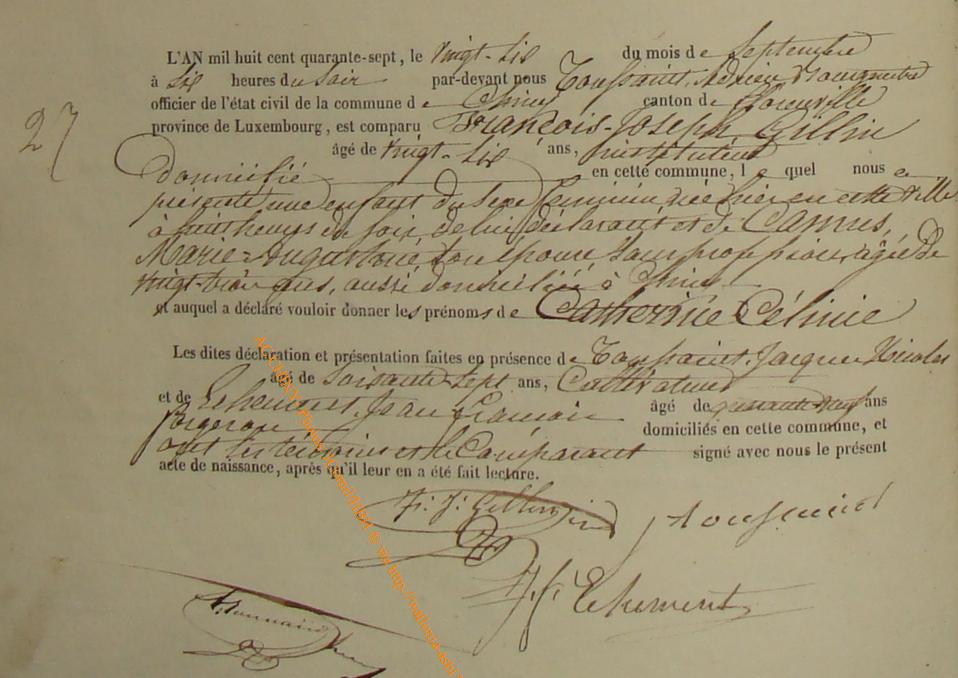 L'AN mil huit cent quarante-sept, le vingt-six du mois de Septembre
à six heures du soir par-devant nous Toussaint, Adrien Bourgmestre
officier de l'état civil de la commune de Chiny canton de Florenville
province de Luxembourg, est comparu François-Joseph Gillin
27
âgé de vingt-six ans, instituteur
domicilié en cette commune, lequel nous a
présenté une enfant du sexe féminin née hier en cette ville
à huit heures du soir, de lui déclarant et de Camus,
Marie-Augustine, son épouse sans profession, âgée de
vingt-trois ans, aussi domiciliée à Chiny
et auquel a déclaré vouloir donner les prénoms de Catherine Célinie
Les dites déclaration et présentation faites en présence de Toussaint, Jacques Nicolas
âgé de soixante-sept ans, Cultivateur
et de Echement, Jean François âgé de ans
forgeron domiciliés en cette commune, et
ont les témoins et le Comparant signé avec nous le présent
acte de naissance, après qu'il leur en a été fait lecture.
F. J. Gillin Toussaint
J. f. Echement